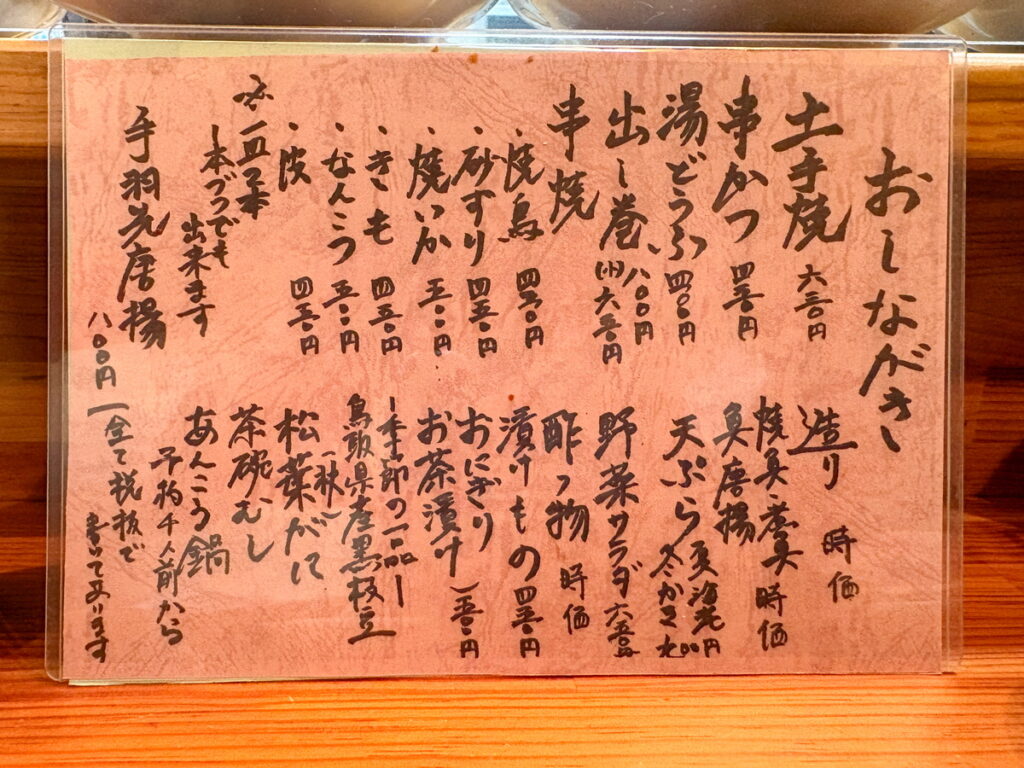 おしながき
土手焼 六三〇円
串かつ 四五〇円
湯どうふ 四〇〇円
出し巻 八〇〇円
(小)六五〇円
串焼
・焼鳥 四五〇円
・砂ずり 四五〇円
・焼いか 五〇〇円
・きも 四五〇円
・なんこつ 五〇〇円
・皮 四五〇円
一皿2本
一本づつでも
出来ます
手羽先唐揚
八〇〇円
造り 時価
焼魚・煮魚 時価
魚唐揚
天ぷら 夏 海老
冬 かき 九〇〇円
野菜サラダ 六五〇円
酢つ物 時価
漬けもの 四五〇円
おにぎり
お茶漬け 五〇〇円
ー季節の一品ー
鳥取県産黒枝豆
(秋)
松葉がに
茶碗むし
あんこう鍋
予約2人前から
全て税抜で
書いてあります